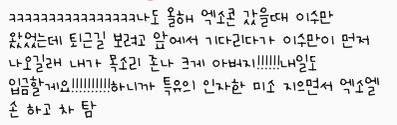 ㅋㅋㅋㅋㅋㅋㅋㅋㅋㅋㅋㅋㅋㅋㅋㅋ나도 올해 엑소콘 갔을때 이수만
왔었는데 퇴근길 보려고 앞에서 기다리다가 이수만이 먼저
나오길래 내가 목소리 존나 크게 아버지!!!!!!내일도
입금할게요!!!!!!!!!!하니까 특유의 인자한 미소 지으면서 엑소엘
손 하고 차 탐